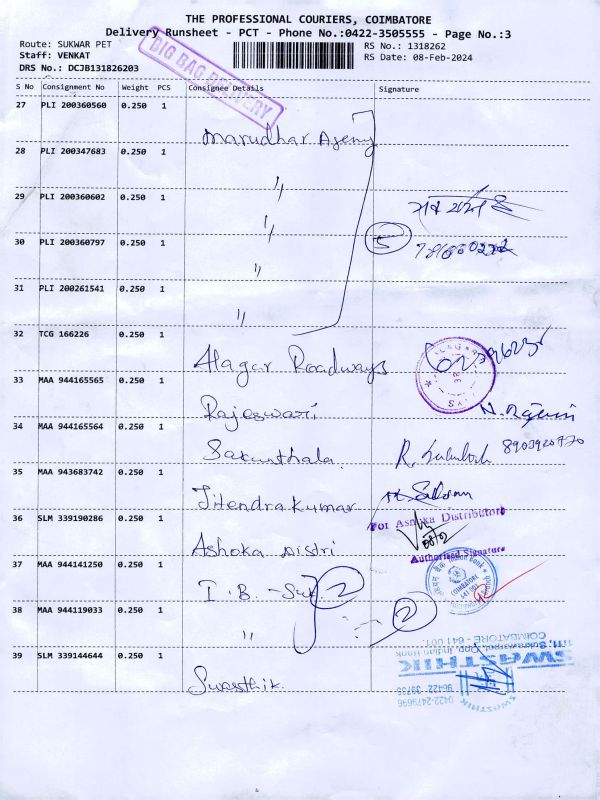 THE PROFESSIONAL COURIERS, COIMBATORE
Delivery Runsheet - PCT - Phone No.:0422-3505555 - Page No.:3
Route: SUKWAR PET
RS No.: 1318262
Staff: VENKAT
RS Date: 08-Feb-2024
DRS No.: DCJB131826203
BIG BAG DELIVERY
S No Consignment No Weight PCS Consignee Details Signature
27 PLI 200360560 0.250 1 Marudhar Agency
28 PLI 200347683 0.250 1 "
29 PLI 200360602 0.250 1 "
30 PLI 200360797 0.250 1 " 5
31 PLI 200261541 0.250 1 "
32 TCG 166226 0.250 1 Alagar Roadways
33 MAA 944165565 0.250 1 Rajeswari
34 MAA 944165564 0.250 1 Sakunthala
35 MAA 943683742 0.250 1 Jitendra kumar
36 SLM 339190286 0.250 1 Ashoka Distri
For Ashoka Distributors
Authorised Signature
37 MAA 944141250 0.250 1 I.B - Suk 2
COIMBATORE
641 001
38 MAA 944119033 0.250 1 " 2
39 SLM 339144644 0.250 1 Swasthik
SWASTHIK
Opp. Indian Bank
COIMBATORE - 641 001.
0422-2479696